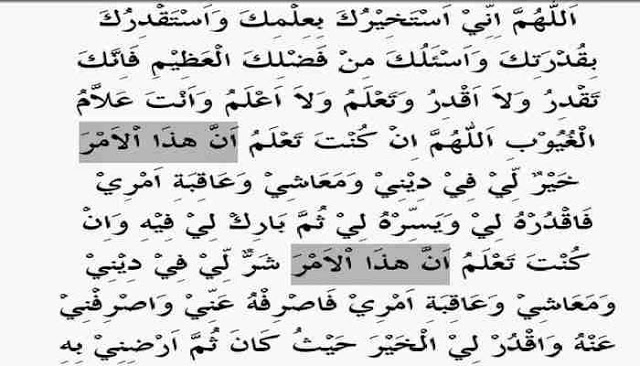 اَللّٰهُمَّ اِنِّيْ اَسْتَخِيْرُكَ بِعِلْمِكَ وَاَسْتَقْدِرُكَ
بِقُدْرَتِكَ وَاَسْئَلُكَ مِنْ فَضْلِكَ الْعَظِيْمِ فَاِنَّكَ
تَقْدِرُ وَلاَ اَقْدِرُ وَتَعْلَمُ وَلاَ اَعْلَمُ وَاَنْتَ عَلاَّمُ
الْغُيُوْبِ اَللّٰهُمَّ اِنْ كُنْتَ تَعْلَمُ اَنَّ هٰذَا الْاَمْرَ
خَيْرٌ لِّيْ فِيْ دِيْنِيْ وَمَعَاشِيْ وَعَاقِبَةِ اَمْرِيْ
فَاقْدُرْهُ لِيْ وَيَسِّرْهُ لِيْ ثُمَّ بَارِكْ لِيْ فِيْهِ وَاِنْ
كُنْتَ تَعْلَمُ اَنَّ هٰذَا الْاَمْرَ شَرٌّ لِّيْ فِيْ دِيْنِيْ
وَمَعَاشِيْ وَعَاقِبَةِ اَمْرِيْ فَاصْرِفْهُ عَنِّيْ وَاصْرِفْنِيْ
عَنْهُ وَاقْدُرْ لِيْ الْخَيْرَ حَيْثُ كَانَ ثُمَّ اَرْضِنِيْ بِهِ